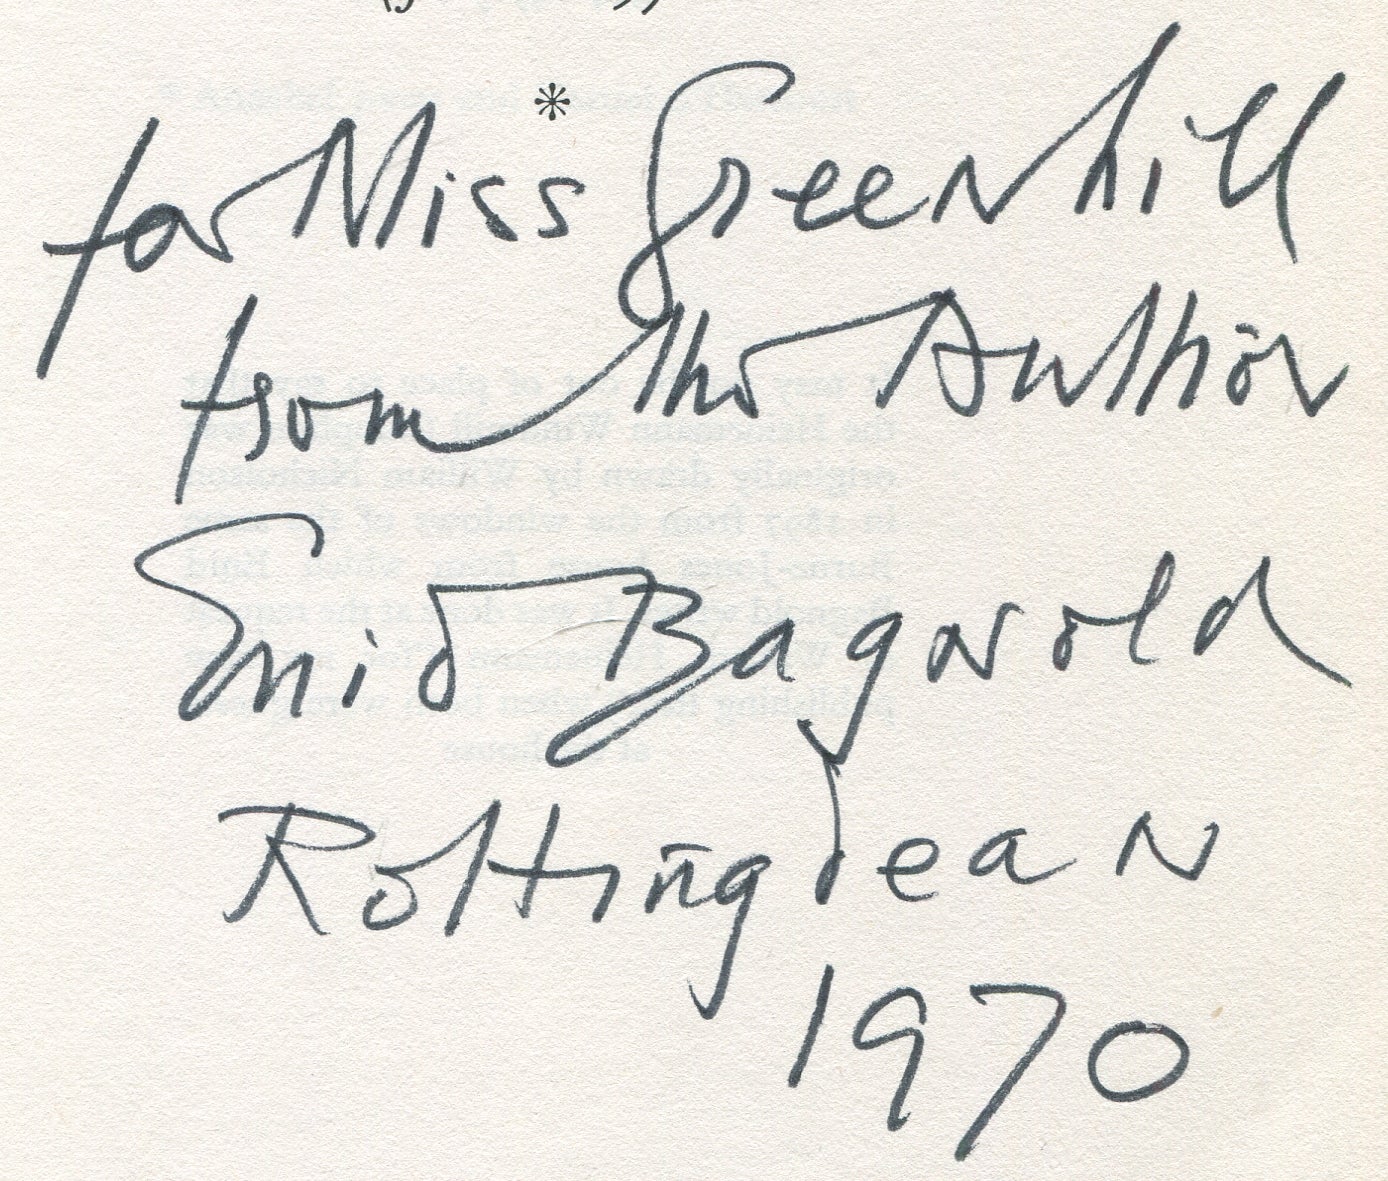 for Miss Greenhill
from the Author
Enid Bagnold
Rottingdean
1970